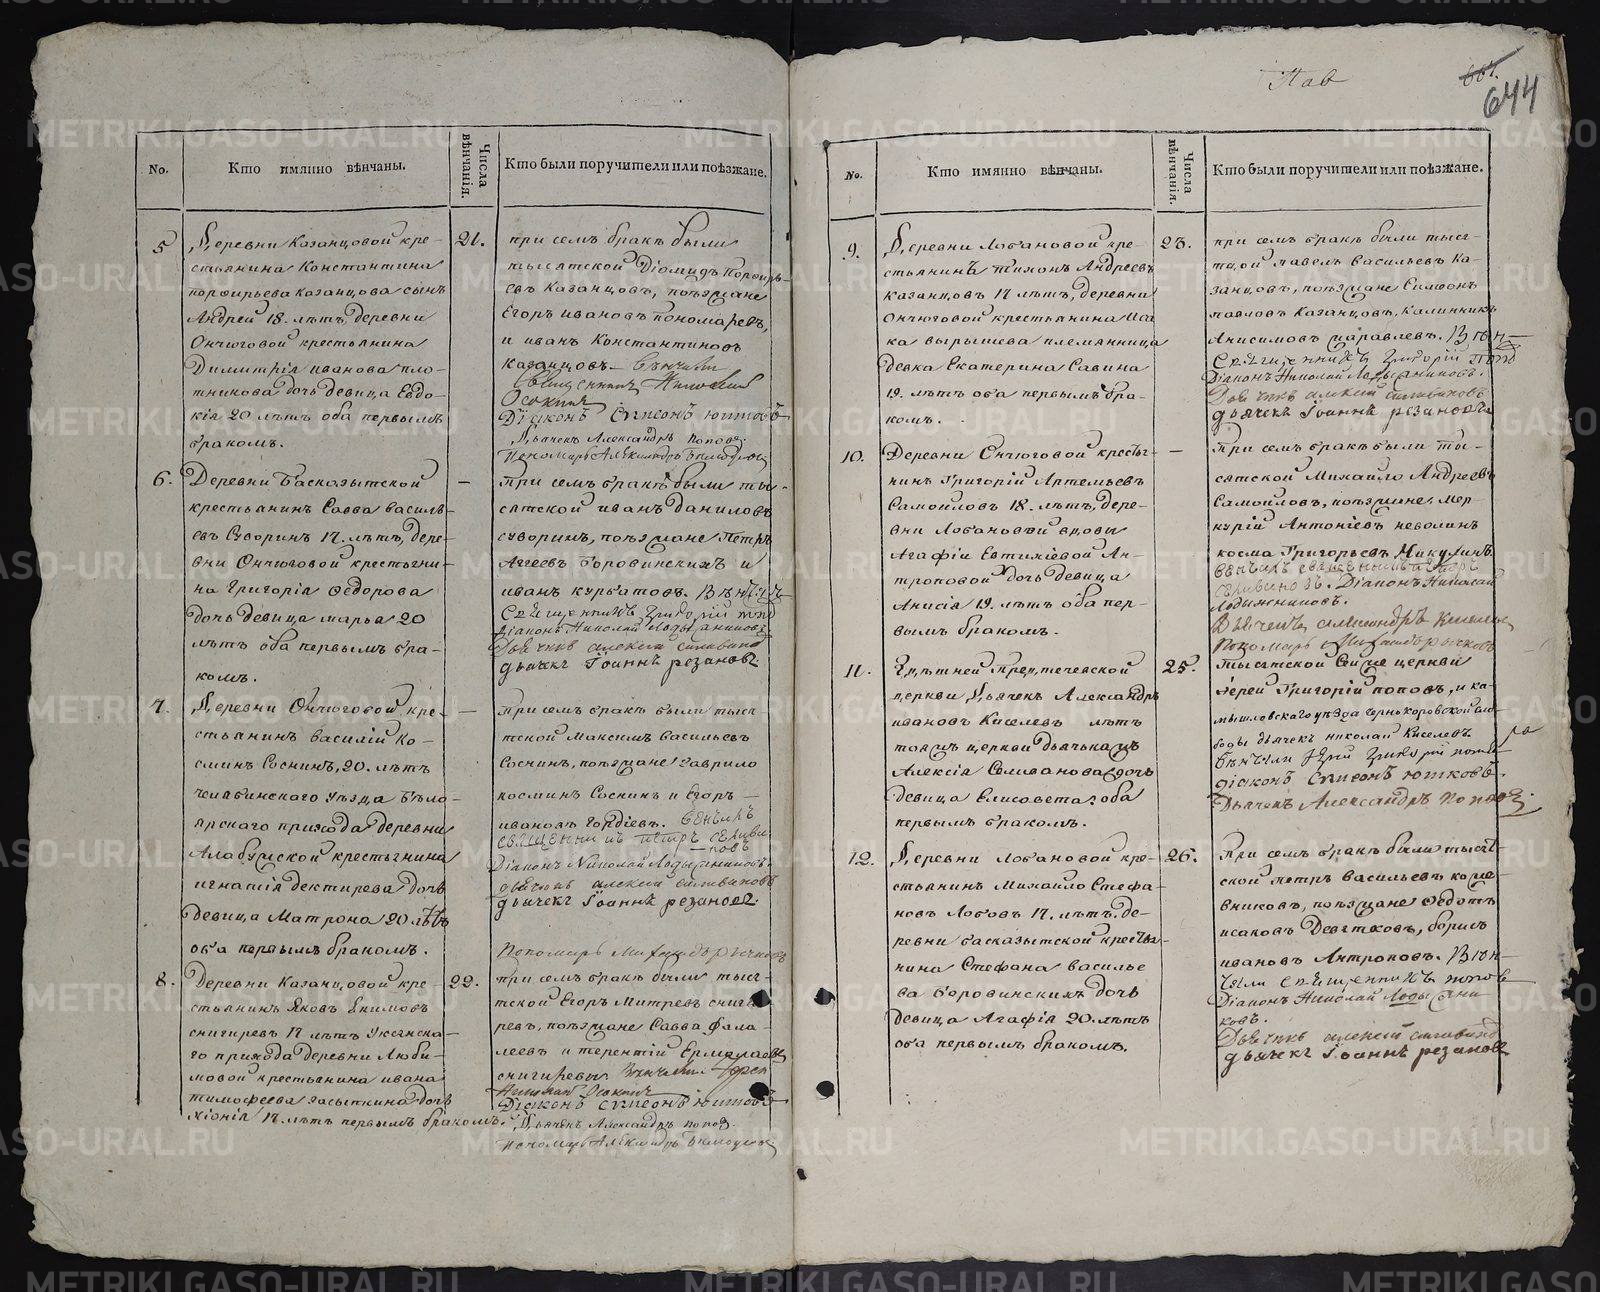 Пав
664.
644
No.
Кто имянно вѣнчаны.
Числа вѣнчанiя.
Кто были поручители или поѣзжане.
5
Деревни Казанцовой кре-
стьянина Константина
порфирьева Казанцова сынъ
Андрей 18. лѣтъ, деревни
Ончюговой крестьянина
Димитрiя иванова пло-
тникова дочь девица Евдо-
кiя 20 лѣтъ оба первымъ
бракомъ.
21.
при семъ бракѣ были
тысятской Дiомидъ Порфирь-
евъ Казанцовъ, поѣзжане
Егоръ ивановъ пономаревъ,
и иванъ Константиновъ
казанцовъ. Вѣнчали
Священникъ Николай
Осокинъ
Дiаконъ Симеонъ
Дьячекъ Александръ поповъ.
Пономарь Александръ
6.
Деревни Басказытской
крестьянинъ Савва василь-
евъ Суворинъ 17. лѣтъ, дере-
вни Ончюговой крестьяни-
на Григорiя Федорова
дочь девица марья 20
лѣтъ оба первымъ бра-
комъ.
—
При семъ бракѣ были ты-
сятской иванъ Даниловъ
суворинъ, поѣзжане Петръ
Агеевъ Боровинскихъ и
иванъ курбатовъ. Вѣнчалъ
Священникъ Григорiй попо
Дiаконъ Николай Лодыжниковъ
Дьячекъ алексей селиванов
дьячекъ Iоаннъ резановъ
7.
Деревни Ончюговой кре-
стьянинъ василiй Ко-
сминъ Соснинъ, 20. лѣтъ
челябинскаго уѣзда Бѣло-
ярскаго прихода деревни
Алабужской крестьянина
игнатiя дектярева дочь
девица Матрона 20 лѣтъ
оба первымъ бракомъ.
—
При семъ бракѣ были тыся-
тской Максимъ васильевъ
Соснинъ, поѣзжане гаврило
косминъ Соснинъ и Егоръ —
ивановъ Гордiевъ. Венчалъ
священникъ петръ селива
новъ
Дiаконъ Николай Лодыжниковъ.
дьячекъ алексей селивановъ
дьячекъ Iоаннъ резановъ.
Пономарь
8.
Деревни Казанцовой кре-
стьянинъ Яковъ Екимовъ
снигиревъ 17 лѣтъ Уксянска-
го прихода деревни Люби-
мовой крестьянина ивана
тимофеева засыпкина дочь
Хiонiя 17. лѣтъ первымъ бракомъ.
22.
при семъ бракѣ были тыся-
тской Егоръ Митревъ сниги-
ревъ, поѣзжане Савва фала-
леевъ и терентiй Ермалаевъ
снигиревы. Вѣнчали Iерей
Николай Осокинъ
Дiаконъ Симеонъ
Дьячекъ Александръ поповъ.
Пономарь Александръ
No.
Кто имянно вѣнчаны.
Числа вѣнчанiя.
Кто были поручители или поѣзжане.
9.
Деревни Лобановой кре-
стьянинъ тихонъ Андреевъ
казанцовъ 17 лѣтъ, деревни
Ончюговой крестьянина Иса
ка вырышева племянница
девка Екатерина Савина
19. лѣтъ оба первымъ бра-
комъ.
23.
при семъ бракѣ были тыся-
тской павелъ васильевъ Ка-
занцовъ, поѣзжане Симеонъ
павловъ Казанцовъ, Калинникъ
Анисимовъ журавлевъ. Вѣн-
Священникъ Григорiй попо
Дiаконъ Николай Лодыжниковъ.
Дьячекъ алексей селивановъ
дьячекъ Iоаннъ резановъ
10.
Деревни Ончюговой крестья-
нинъ Григорiй Артемьевъ
Самойловъ 18. лѣтъ, дере-
вни Лобановой вдовы
Агафiи Евтихiевой Ан-
троповой дочь девица
Анисiя 19. лѣтъ оба пер-
вымъ бракомъ.
—
При семъ бракѣ были ты-
сятской Михайло Андреевъ
Самойловъ, поѣзжане мер-
курiй Антонiевъ неволинъ
косма Григорьевъ Микулинъ.
венчалъ священникъ петръ
селивановъ. Дiаконъ Николай
Лодыжниковъ.
Дьячекъ александръ киселевъ
Пономарь
11.
Здѣшней Предтечевской
церкви Дьячекъ Александръ
ивановъ Киселевъ лѣтъ
тояжъ церкви дьячька
Алексiя Селиванова дочь
девица Елисовета, оба
первымъ бракомъ.
25.
тысятской Сея же церкви
Iерей Григорiй поповъ, и ка-
мышловскаго уѣзда чернокоровской сло-
боды дьячекъ николай Киселевъ
Вѣнчали Iерей Григорiй поповъ
дiаконъ Симеонъ
Дьячекъ Александръ поповъ
12.
Деревни Лобановой кре-
стьянинъ Михайло Стефа-
новъ Лобовъ 17. лѣтъ. де-
ревни басказытской крестья-
нина Стефана василье
ва боровинскихъ дочь
девица Агафiя 20. лѣтъ
оба первымъ бракомъ.
26.
При семъ бракѣ были тысят-
ской петръ васильевъ коже-
вниковъ, поѣзжане Федотъ
исаковъ Девятковъ, борисъ
ивановъ Антроповъ. Вѣн-
чали Священникъ попов
Дiаконъ Николай Лодыжни
ковъ.
Дьячекъ алексей селиванов
дьячекъ Iоаннъ резановъ
METRIKI.GASO-URAL.RU